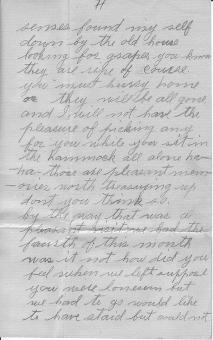 senses found my self
down by the old house
looking for grapes you know
they are ripe of course.
you must hurry home
or they will be all gone
and I will not have the
pleasure of picking any
for you while you sit in
the hammock all alone ha-
-ha. those are pleasant mem-
-ories worth treasuring up
dont you think so.
by the way that was a
pleasant visit we had the
fourth of this month
was it not how did you
feel when we left suppose
you were lonesum but
we had to go would like
to have staid but could not